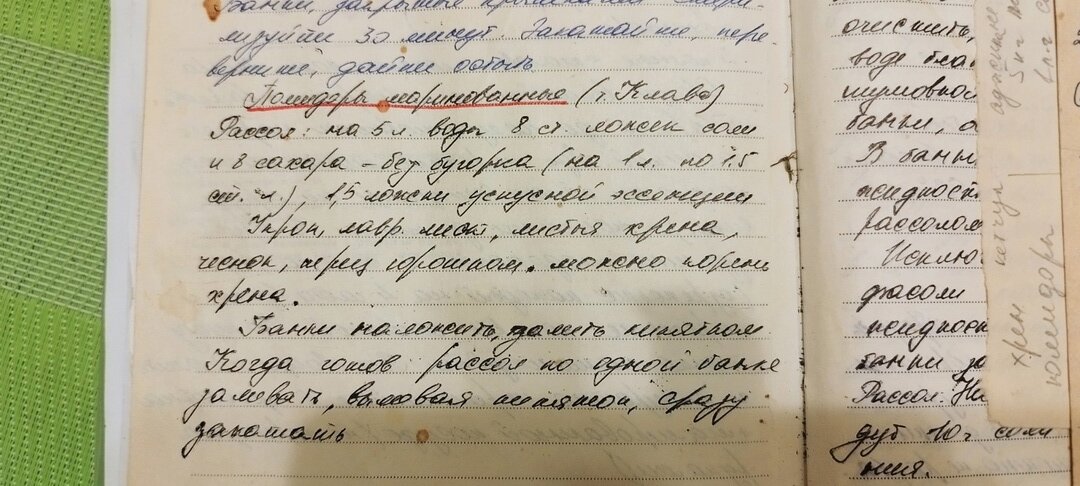 Банки, закрытые крышками стери-
лизуйте 30 минут. Закатайте, пере-
верните, дайте остыть
Помидоры маринованные (т. Клава)
Рассол: на 5 л. воды 8 ст. ложек соли
и 8 сахара - без бугорка (на 1 л. по 1.5
ст. л.), 1,5 ложки уксусной эссенции
Укроп, лавр. лист, листья хрена,
чеснок, перец горошком. можно корень
хрена.
Банки наложить, залить кипятком
Когда готов рассол по одной банке
заливать, выливая кипяток, сразу
закатать
очистить,
воде
банки, а
В банки
жидкость
рассолом
Исклю
фасоли
жидкост
банки за
Рассол: На
дут 10 г соли
ния.
аджика
5 кг
кетчуп
хрен
помидоры